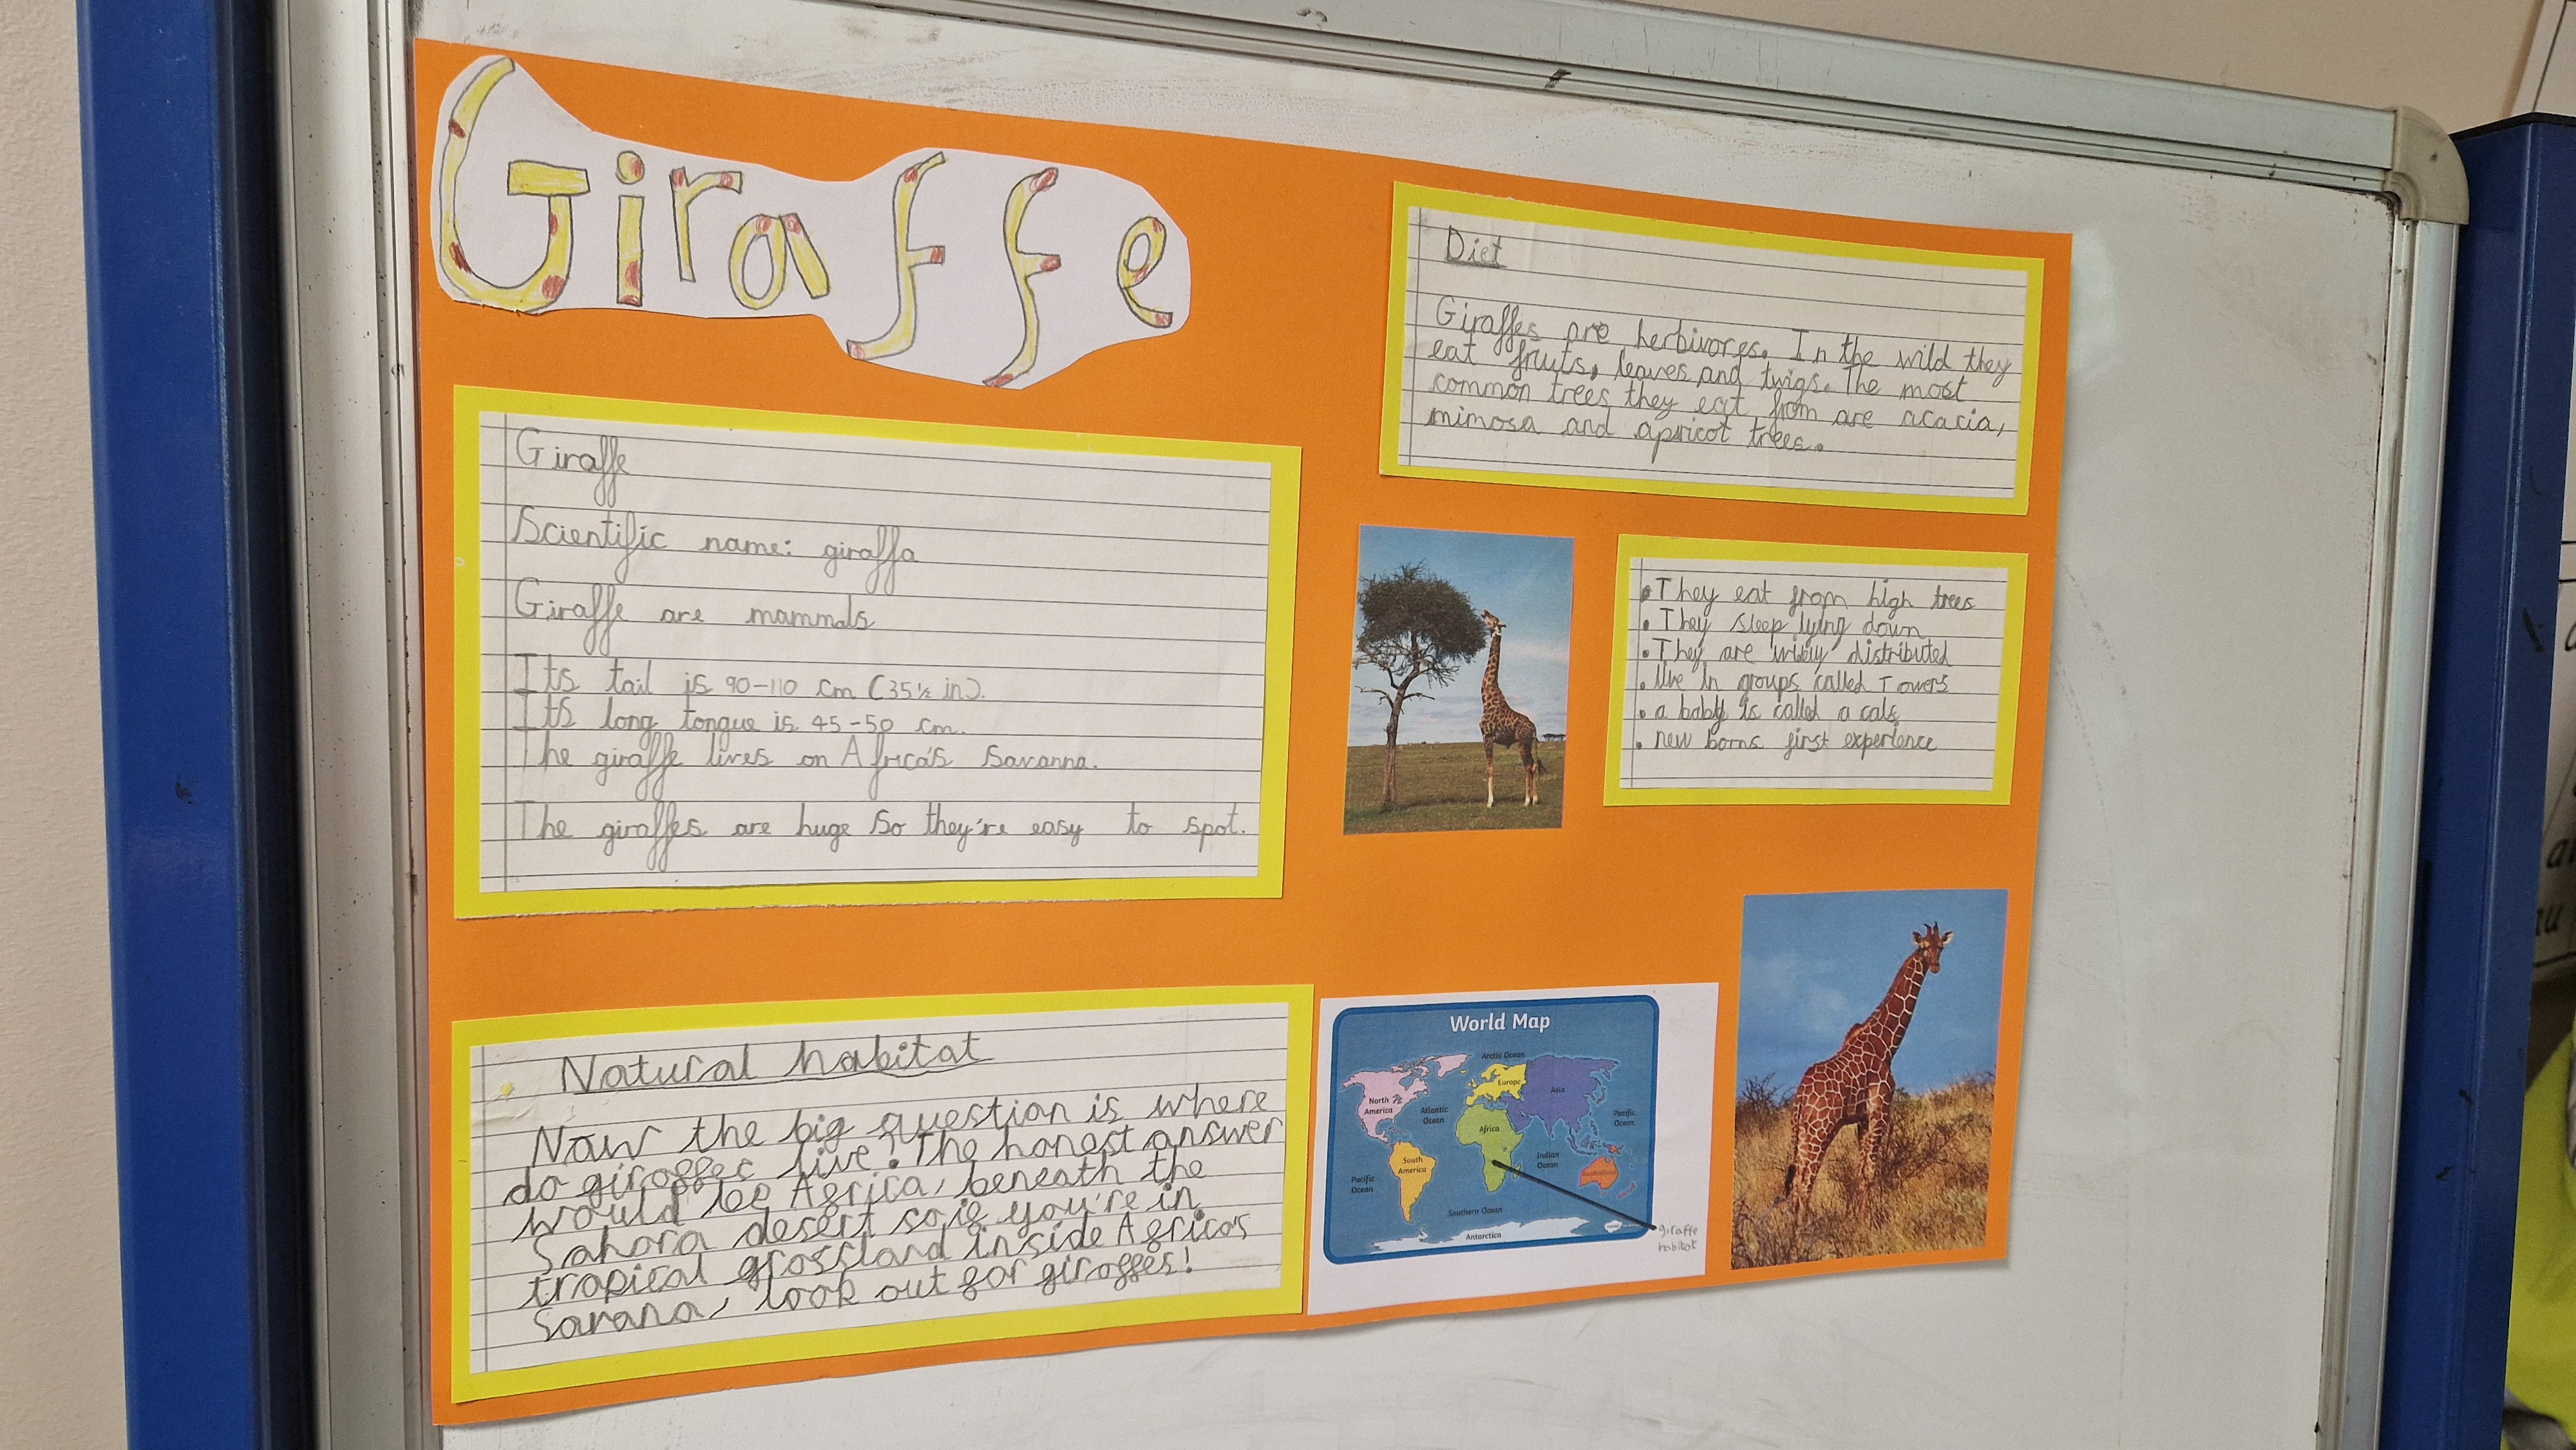 Giraffe
Giraffe
Scientific name: giraffa
Giraffe are mammals
Its tail is 90-110 cm (35½ in).
Its long tongue is 45-50 cm.
The giraffe lives on Africa's Savanna.
The giraffes are huge so they're easy to spot.
Natural habitat
Now the big question is where
do giraffes live? The honest answer
would be Africa, beneath the
Sahara desert so if you're in
tropical grassland inside Africa's
Savana, look out for giraffes!
Diet
Giraffes are herbivores. In the wild they
eat fruits, leaves and twigs. The most
common trees they eat from are acacia,
mimosa and apricot trees.
• They eat from high trees
• They sleep lying down
• They are widely distributed
• live in groups called Towers
• a baby is called a calf
• new borns first experience
World Map
Arctic Ocean
Europe
Asia
North
America
Atlantic
Ocean
Pacific
Ocean
Africa
South
America
Indian
Ocean
Pacific
Ocean
Southern Ocean
Antarctica
giraffe
habitat